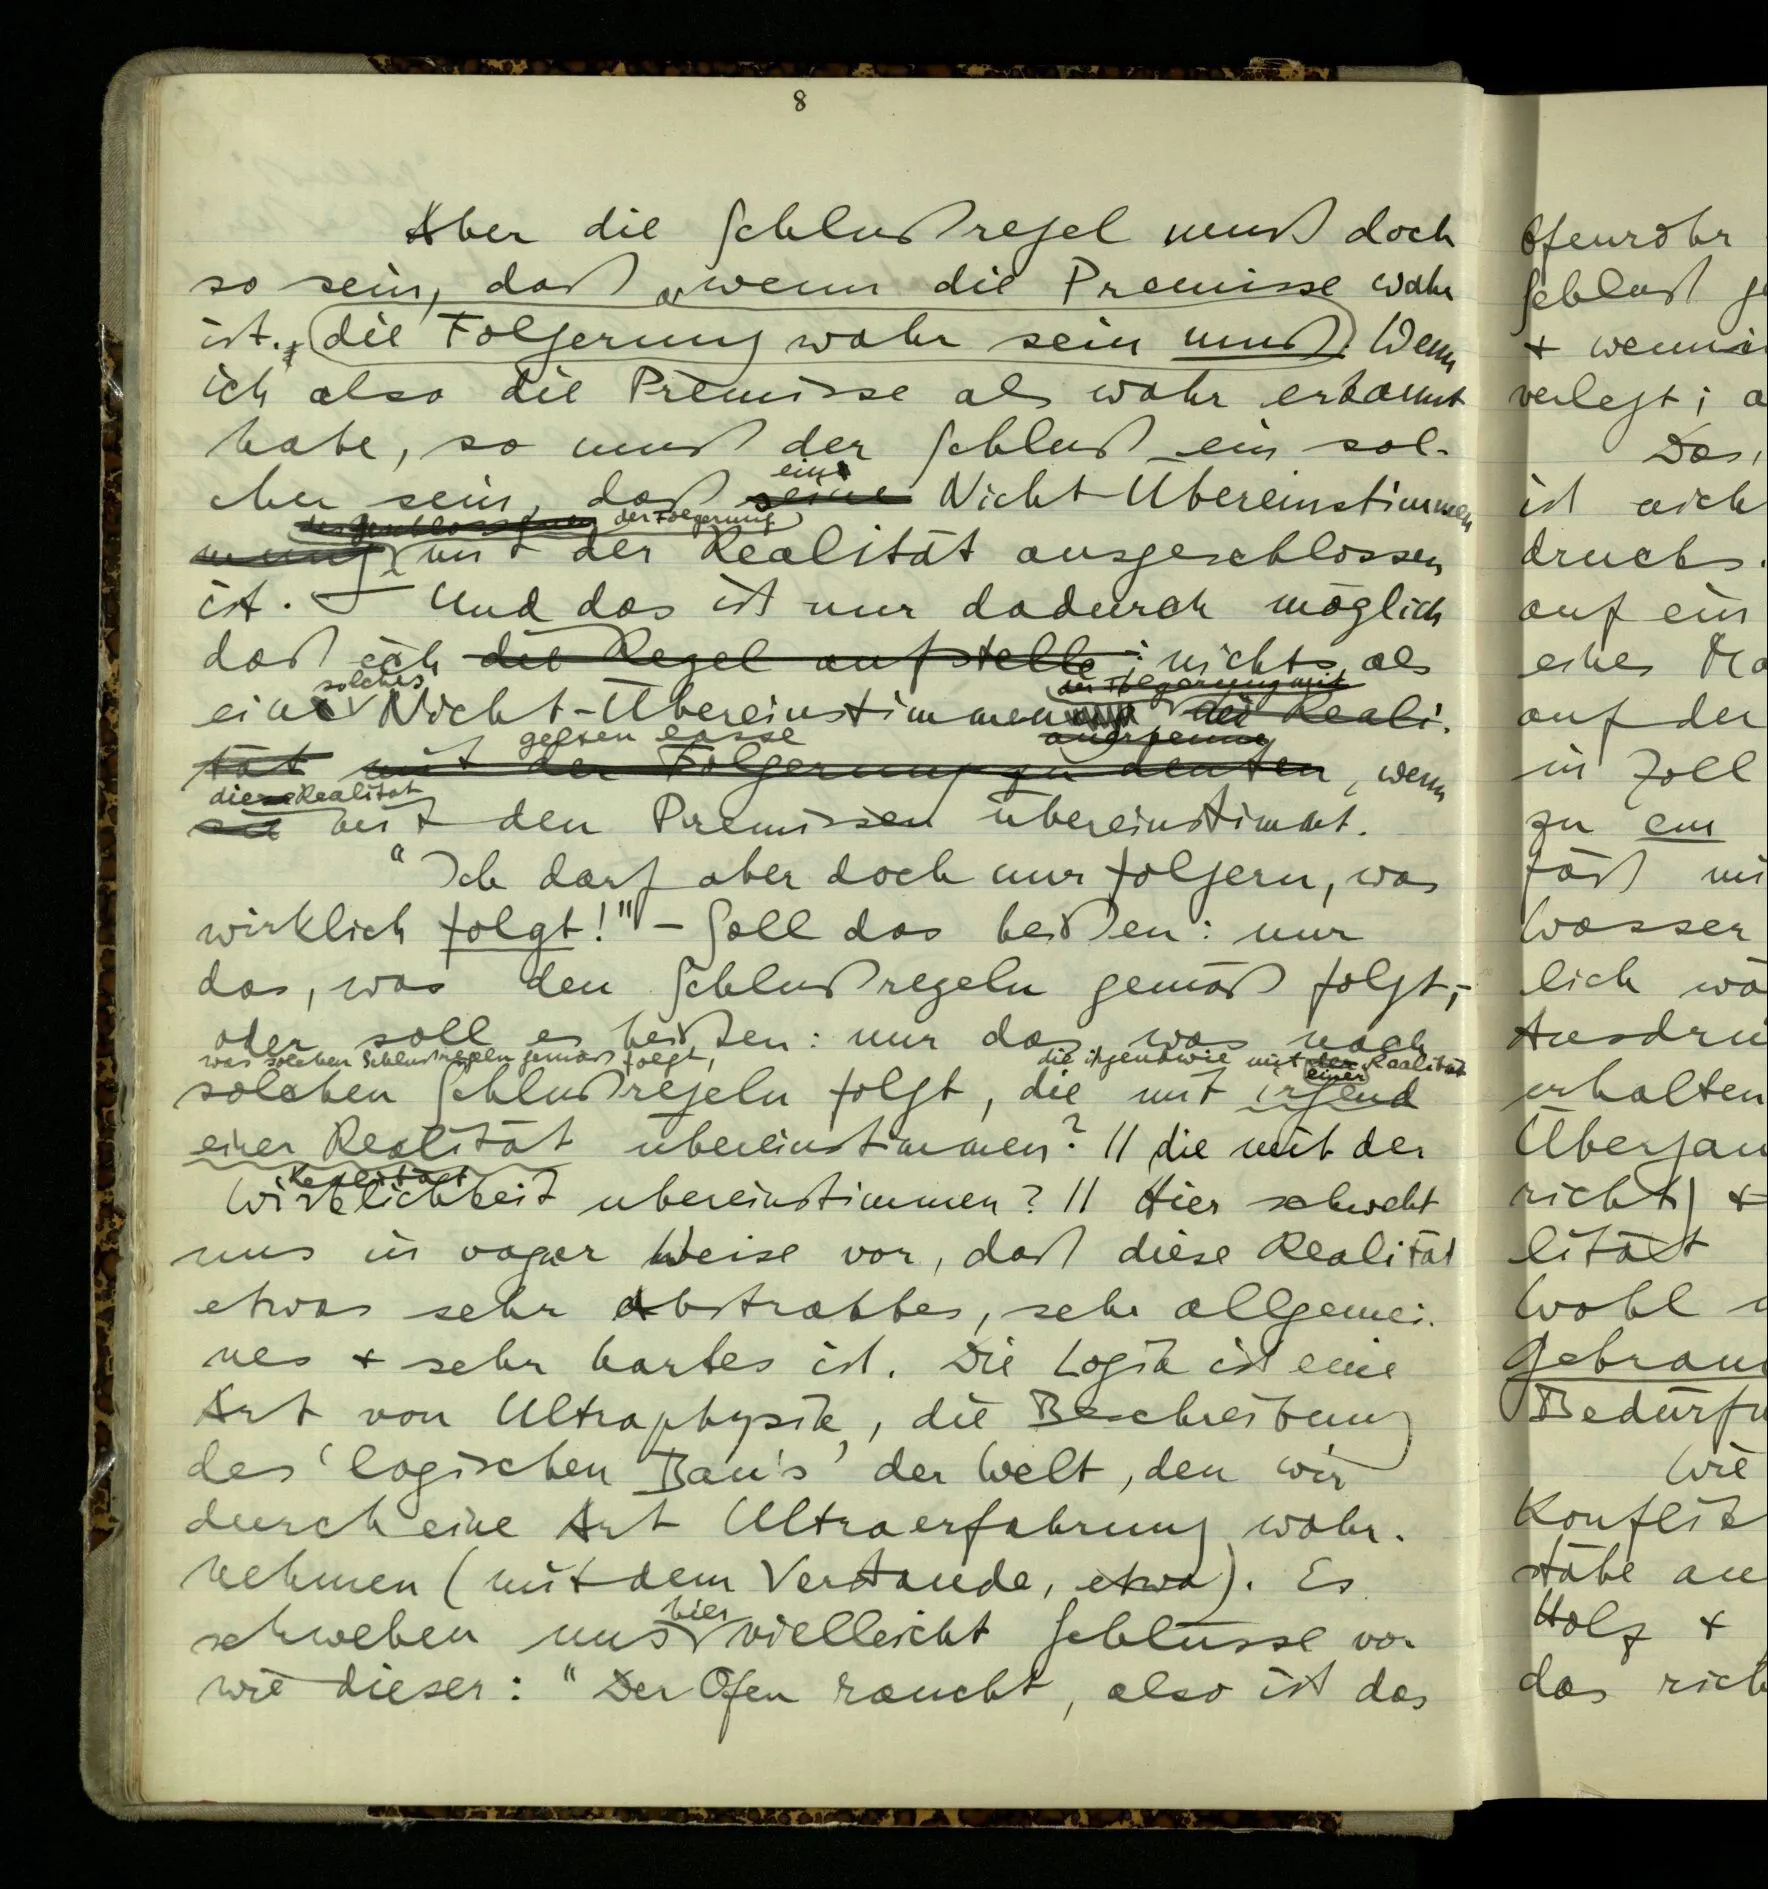 8
Aber die Schlußregel muß doch
so sein, daß, wenn die Premisse wahr
ist, die Folgerung wahr sein muß. Wenn
ich also die Premisse als wahr erkannt
habe, so muß der Schluß ein sol-
eine
cher sein, daß seine Nicht-Übereinstimmen
der Folgerung
mit der Realität ausgeschlossen
ist. – Und das ist nur dadurch möglich
daß ich die Regel aufstelle: nichts als
solches
ein Nicht-Übereinstimmen der Folgerung mit der Reali-
gelten lasse anerkenne
tät mit der Folgerung zu deuten, wenn
diese Realität
sie mit den Premissen übereinstimmt.
"Ich darf aber doch nur folgern, was
wirklich folgt!" – Soll das heißen: nur
das, was den Schlußregeln gemäß folgt;–
oder soll es heißen: nur das, was nach
was solchen Schlußregeln gemäß folgt, die irgendwie mit der einer Realität
solchen Schlußregeln folgt, die mit irgend
einer Realität übereinstimmen? || die mit der
Realität
Wirklichkeit übereinstimmen? || Hier schwebt
uns in vager Weise vor, daß diese Realität
etwas sehr abstraktes, sehr allgemei-
nes + sehr hartes ist. Die Logik ist eine
Art von Ultraphysik, die Beschreibung
des 'logischen Bau's' der Welt, den wir
durch eine Art Ultraerfahrung wahr-
nehmen (mit dem Verstande, etwa). Es
hier
schweben uns vielleicht Schlüsse vor
wie dieser: "Der Ofen raucht, also ist das
Ofenrohr
Schluß
+ wenn
verlegt;
Das,
ist nich
drucks.
auf ein
eines Ma
auf der
in Zoll
zu cm
fäß mi
Wasser
lich wä
Ausdru
erhalten
Übergan
richt) +
lität
wohl
Gebrau
Bedürfn
Wie
Konflik
stäbe au
Holz +
das rich